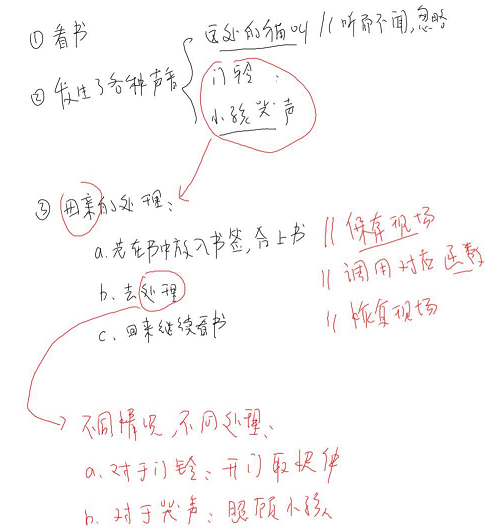 ① 看书
② 发生了各种声音
远处的猫叫 // 听而不闻,忽略
门铃
小孩哭声
③ 母亲的处理:
a.先在书中放入书签,合上书 // 保存现场
b. 去处理 // 调用对应函数
c. 回来继续看书 // 恢复现场
不同情况,不同处理:
a. 对于门铃: 开门取快件
b. 对于哭声: 照顾小孩